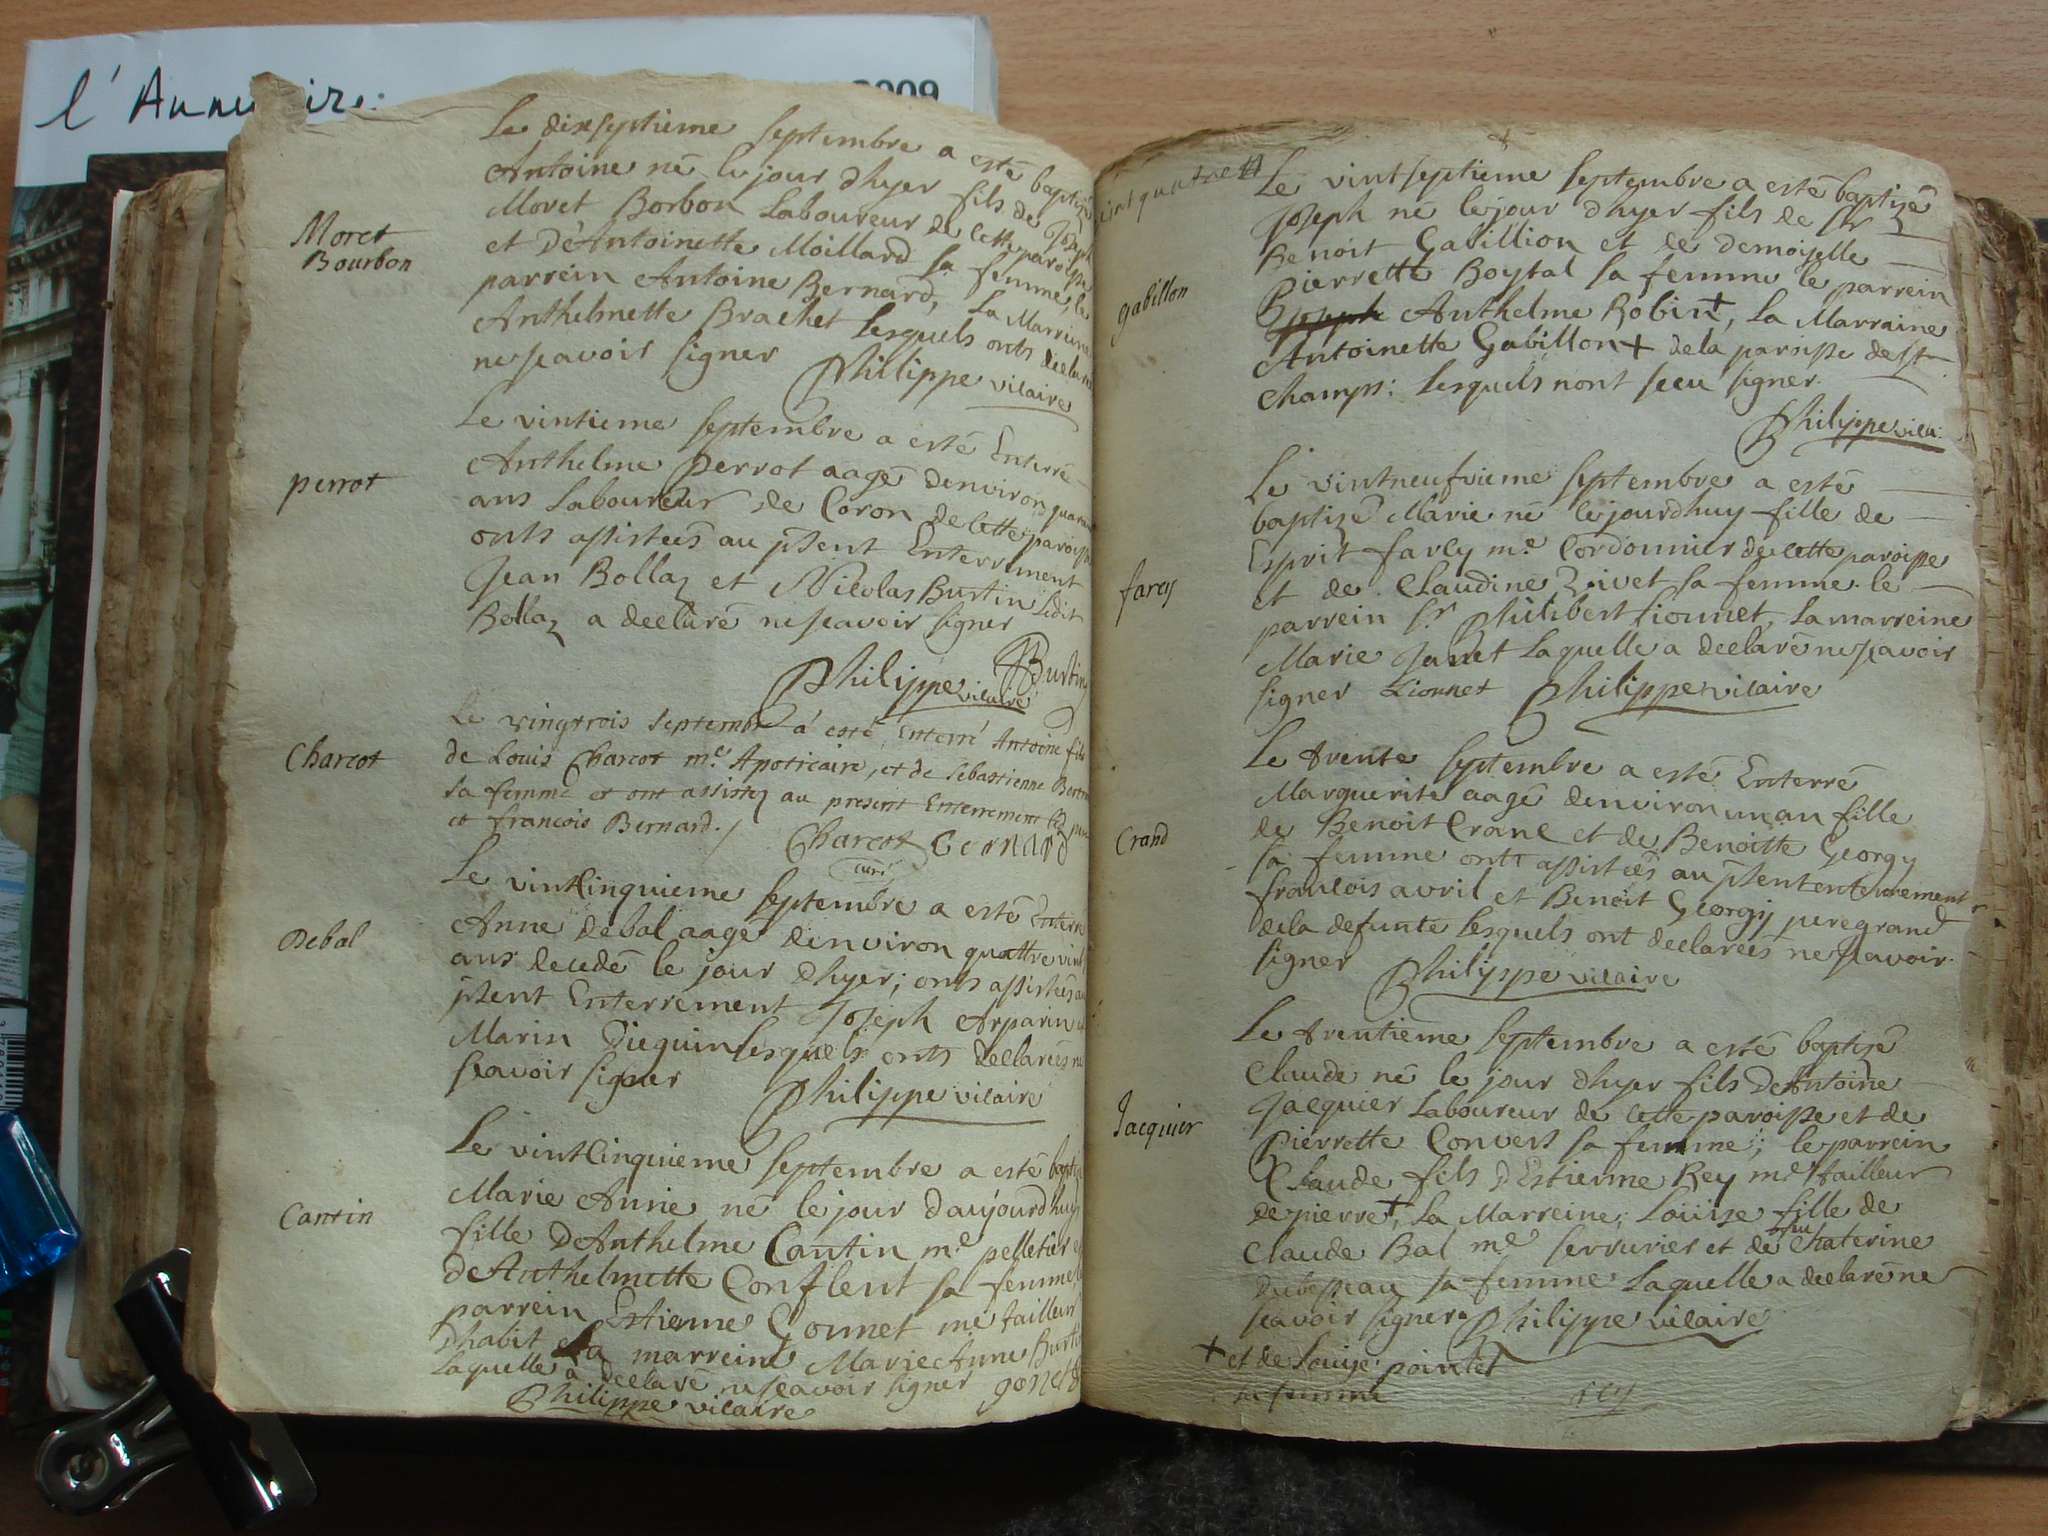 l'Annuaire
2009
Le dixseptieme septembre a esté baptizé
Antoine né le jour dhyer fils de Joseph
Moret Borbon Laboureur de cette paroisse
et DeAntoinette Moillard sa femme, le
parrein Antoine Bernard, La Marreine
Anthelmette Brachet lesquels onts declarés
ne scavoir signer Philippe vicaire
Moret
Bourbon
Le vintieme septembre a esté Enterré
Anthelme Perrot aagé denviron quarante
ans Laboureur de Coron de cette paroisse
onts assistées au pnsent Enterrement
Jean Bollaz et Nicolas Burtin Ledit
Bollaz a declaré ne scavoir signer
Burtin
Philippe vicaire
perrot
Le vingtrois septembre á esté Enterré Antoine fils
de Louis Charcot me. Apoticaire, et de Sebastienne
sa femme et ont assistez au present Enterrement
et francois Bernard./
Charcot Bernard
curé
Charcot
Le vintCinquieme septembre a esté Enterré
Anne debal aagé denviron quattre vint
ans decedé le jour dhyer; onts assistées au
pnsent Enterrement Joseph Arparin et
Marin Dieguin lesquels onts declarées ne
scavoir signer Philippe vicaire
Debal
Le vintCinquieme septembre a esté baptizé
Marie Anne né le jour daujourdhuy
fille DeAnthelme Cantin me. pelletier et
deAnthelmette Conflent sa femme, le
parrein Estienne Gonnet me tailleur
Dhabit La marreine Marie Anne Burtin
Laquelle a declaré ne scavoir signer gonet
Philippe vicaire
Cantin
Le vintseptieme septembre a esté baptizé
Joseph né le jour dhyer fils de Sr
Benoit Gabillion et de demoiselle
Pierrette Boystal sa femme le parrein
Joseph Anthelme Robin+, La Marraine
Antoinette Gabillon+ dela paroisse de st
champs: lesquels nont sceu signer.
Philippe vica:
gabillon
Le vintneufvieme septembre a esté
baptizé Marie né lejourdhuy fille de
Esprit farcy me. Cordonnier de cette paroisse
et de Claudine Rivet sa femme. le
parrein Sr Philibert Lionnet, La marreine
Marie Janet Laquelle a declaré ne scavoir
signer Lionnet Philippe vicaire
farcy
Le trente septembre a esté Enterré
Marguerite aagé denviron un an fille
de Benoit Crane et de Benoitte Georgy
sa femme ontt assistées au pnsent enterrement
francois avril et Benoit Georgy pere grand
dela defunte lesquels ont declarées ne scavoir
signer Philippe vicaire
Crand
Le trentieme septembre a esté baptizé
Claude né le jour dhyer fils DeAntoine
Jacquier Laboureur de cette paroisse et de
Pierrette Convers sa femme; le parrein
Claude fils DEstienne Rey me tailleur
de pierre+, La Marreine; Loüize fille de
Claude Bal me serrurier et de Chaterine
sa femme Laquelle a declaré ne
scavoir signer Philippe vicaire
+ et de Louize pointet
sa femme rey
Jacquier